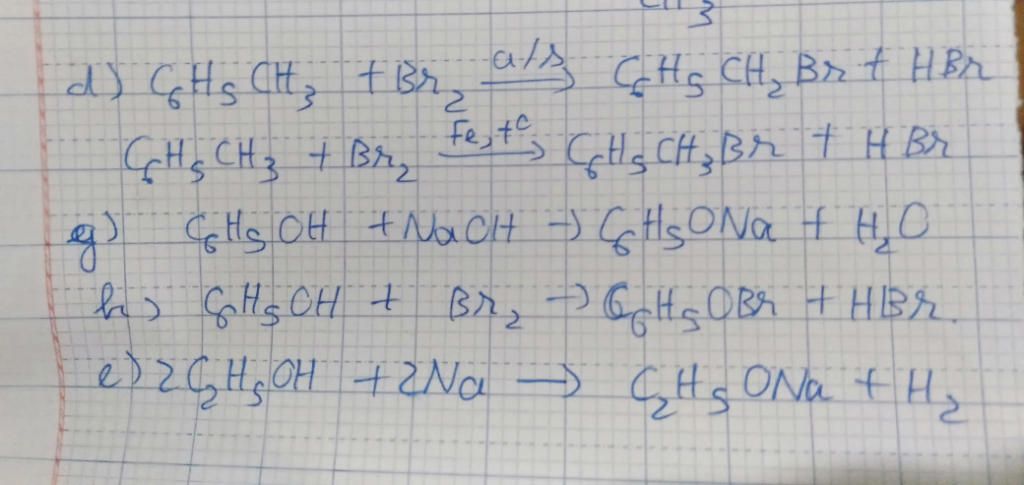 CH₃
d) C₆H₅CH₃ + Br₂ –a/s→ C₆H₅CH₂Br + HBr
C₆H₅CH₃ + Br₂ –Fe, t°→ C₆H₅CH₃Br + HBr
g) C₆H₅OH + NaOH → C₆H₅ONa + H₂O
h) C₆H₅OH + Br₂ → C₆H₅OBr + HBr.
e) 2C₂H₅OH + 2Na → C₂H₅ONa + H₂